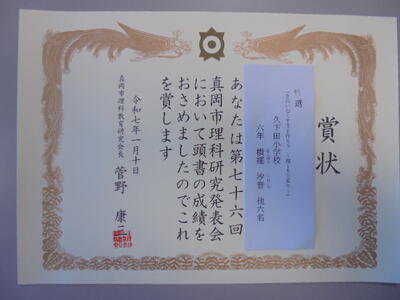 賞状
特選
久下田小学校
六年 橋本 汐音 他六名
あなたは第七十六回
真岡市理科研究発表会
において頭書の成績を
おさめましたのでこれ
を賞します
令和七年一月十日
真岡市理科教育研究会長 菅野 康二